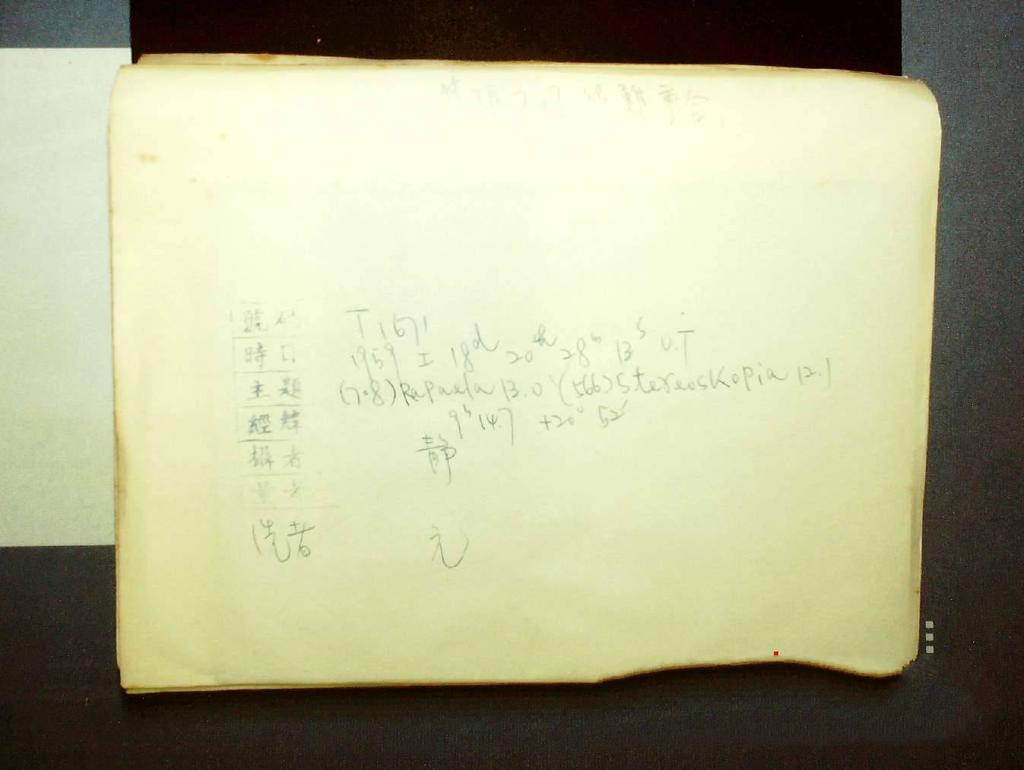 號碼 T 1671
時日 1959 I 18d 20h 28m 13s U.T
主題 (708) Raphaela 13.0 (566) Stereoskopia 12.1
經緯 9h 14.7 +20° 52'
攝者 静
洗者 元